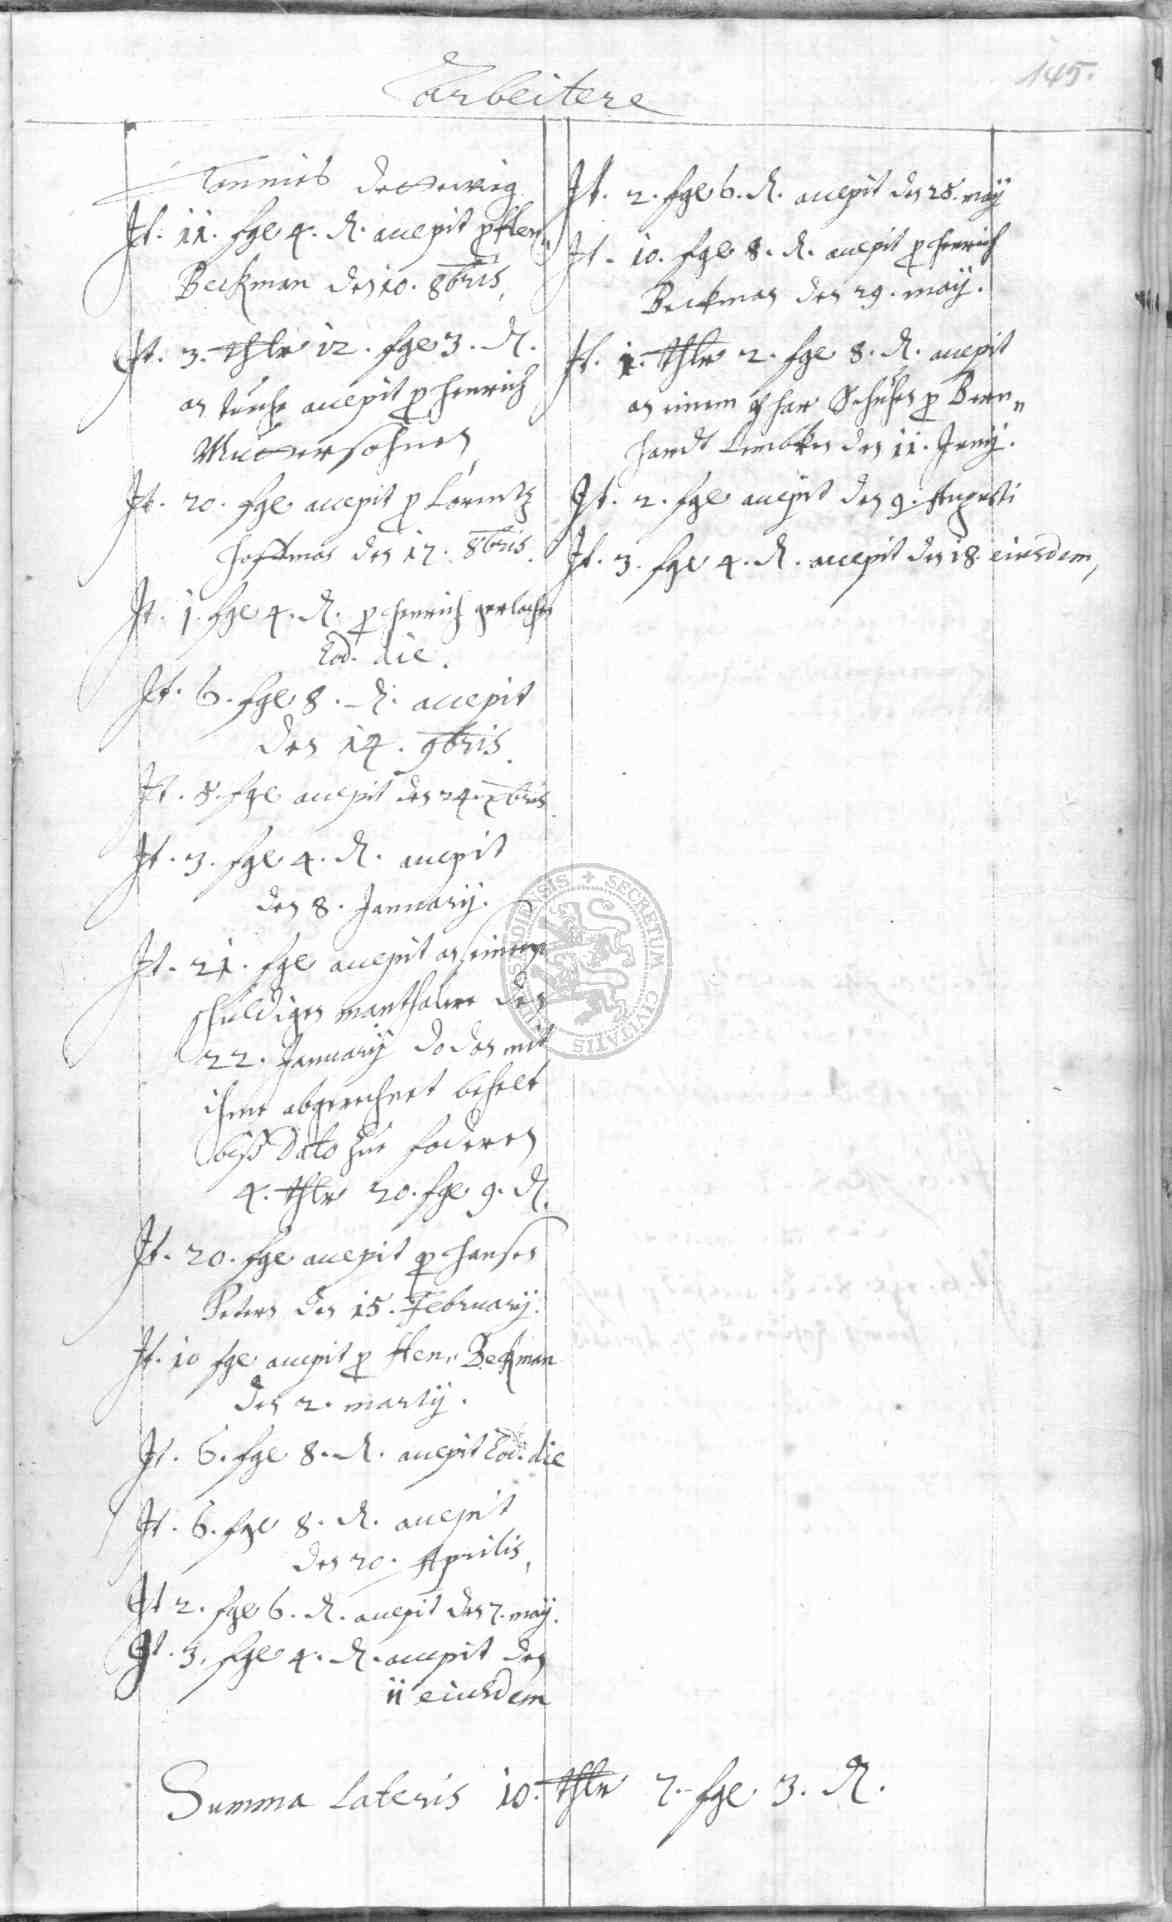 145.
Arbeitere
Tonnies
It. 11. sgl 4. d. accepit p Hen.
Beckman den 10. 8bris,
It. 3. thlr 12. sgl 3. d.
an tuche accepit p Henrich
Muttersohnen
It. 20. sgl accepit p Lorentz
Hoffman den 17. 8bris.
It. 1. sgl 4. d. p Henrich gerlachen
Eod. die.
It. 6. sgl 8. d. accepit
den 14. 9bris.
It. 8. sgl accepit den 24. Xbris
It. 3. sgl 4. d. accepit
den 8. January.
It. 21. sgl accepit an einem
schuldigen den
22. January do dan mit
ihme abgerechnet behelt
biß Dato zue foderen
4. thlr 20. sgl 9. d.
It. 20. sgl accepit p Hansen
Peters den 15. February.
It. 10 sgl accepit p Hen. Beckman
den 2. marty.
It. 6. sgl 8. d. accepit Eod. die
It. 6. sgl 8. d. accepit
den 20. Aprilis,
It 2. sgl 6. d. accepit den 7. may.
It. 3. sgl 4. d. accepit den
11 eiusdem
It. 2. sgl 6. d. accepit den 28. may
It. 10. sgl 8. d. accepit p Henrich
Beckman den 29. may.
It. 1. thlr 2. sgl 8. d. accepit
an einem phar Schuhen p Bern„
hardt Lembken den 11. Juny.
It. 2. sgl accepit den 9. Augusti
It. 3. sgl 4. d. accepit den 18 eiusdem,
Summa Lateris 10. thlr 7. sgl 3. d.
SECRETUM CIVITATIS